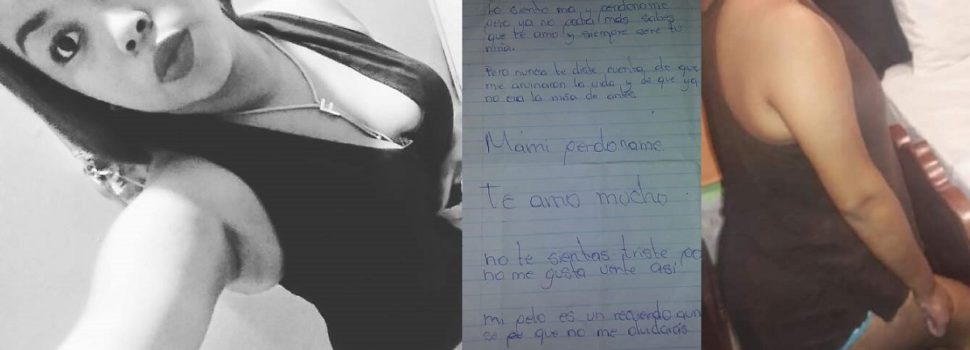 Lo siento ma y perdoname
pero ya no podia más sabes
que te amo y siempre sere tu
niña.
Pero nunca te diste cuenta de que
me arruinaron la vida y de que ya
no era la niña de antes
Mami perdoname
te amo mucho
no te sientas triste
no me gusta verte así
mi pelo es un recuerdo
se que no me olvidarás